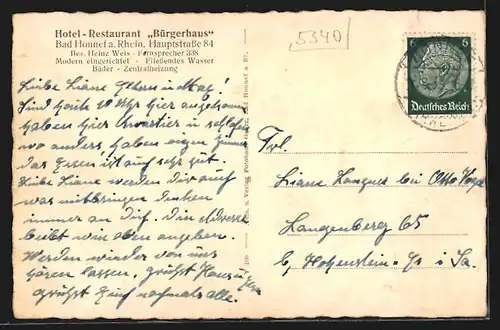 Hotel-Restaurant „Bürgerhaus"
Bad Honnef a. Rhein, Hauptstraße 84
Bes. Heinz Weis - Fernsprecher 338
Modern eingerichtet - Fließendes Wasser
Bäder - Zentralheizung
5340
6 6
Deutsches Reich
Liebe Liane
Sind heute 10 Uhr hier angekommen
haben hier Quartier u schlafen
wo anders, haben eigen Zimmer
das Essen ist auch sehr gut.
Liebe Liane werden dir auch
was mitbringen denken
immer an Dich. Die Adresse
bleibt wie oben angeben.
Werden wieder von uns
hören lassen, grüßt Hans u
grüßt Euch nochmals alle.
Frl.
Liane Langer bei Otto
Langenberg 65
b/ Hohenstein-Er i Sa.